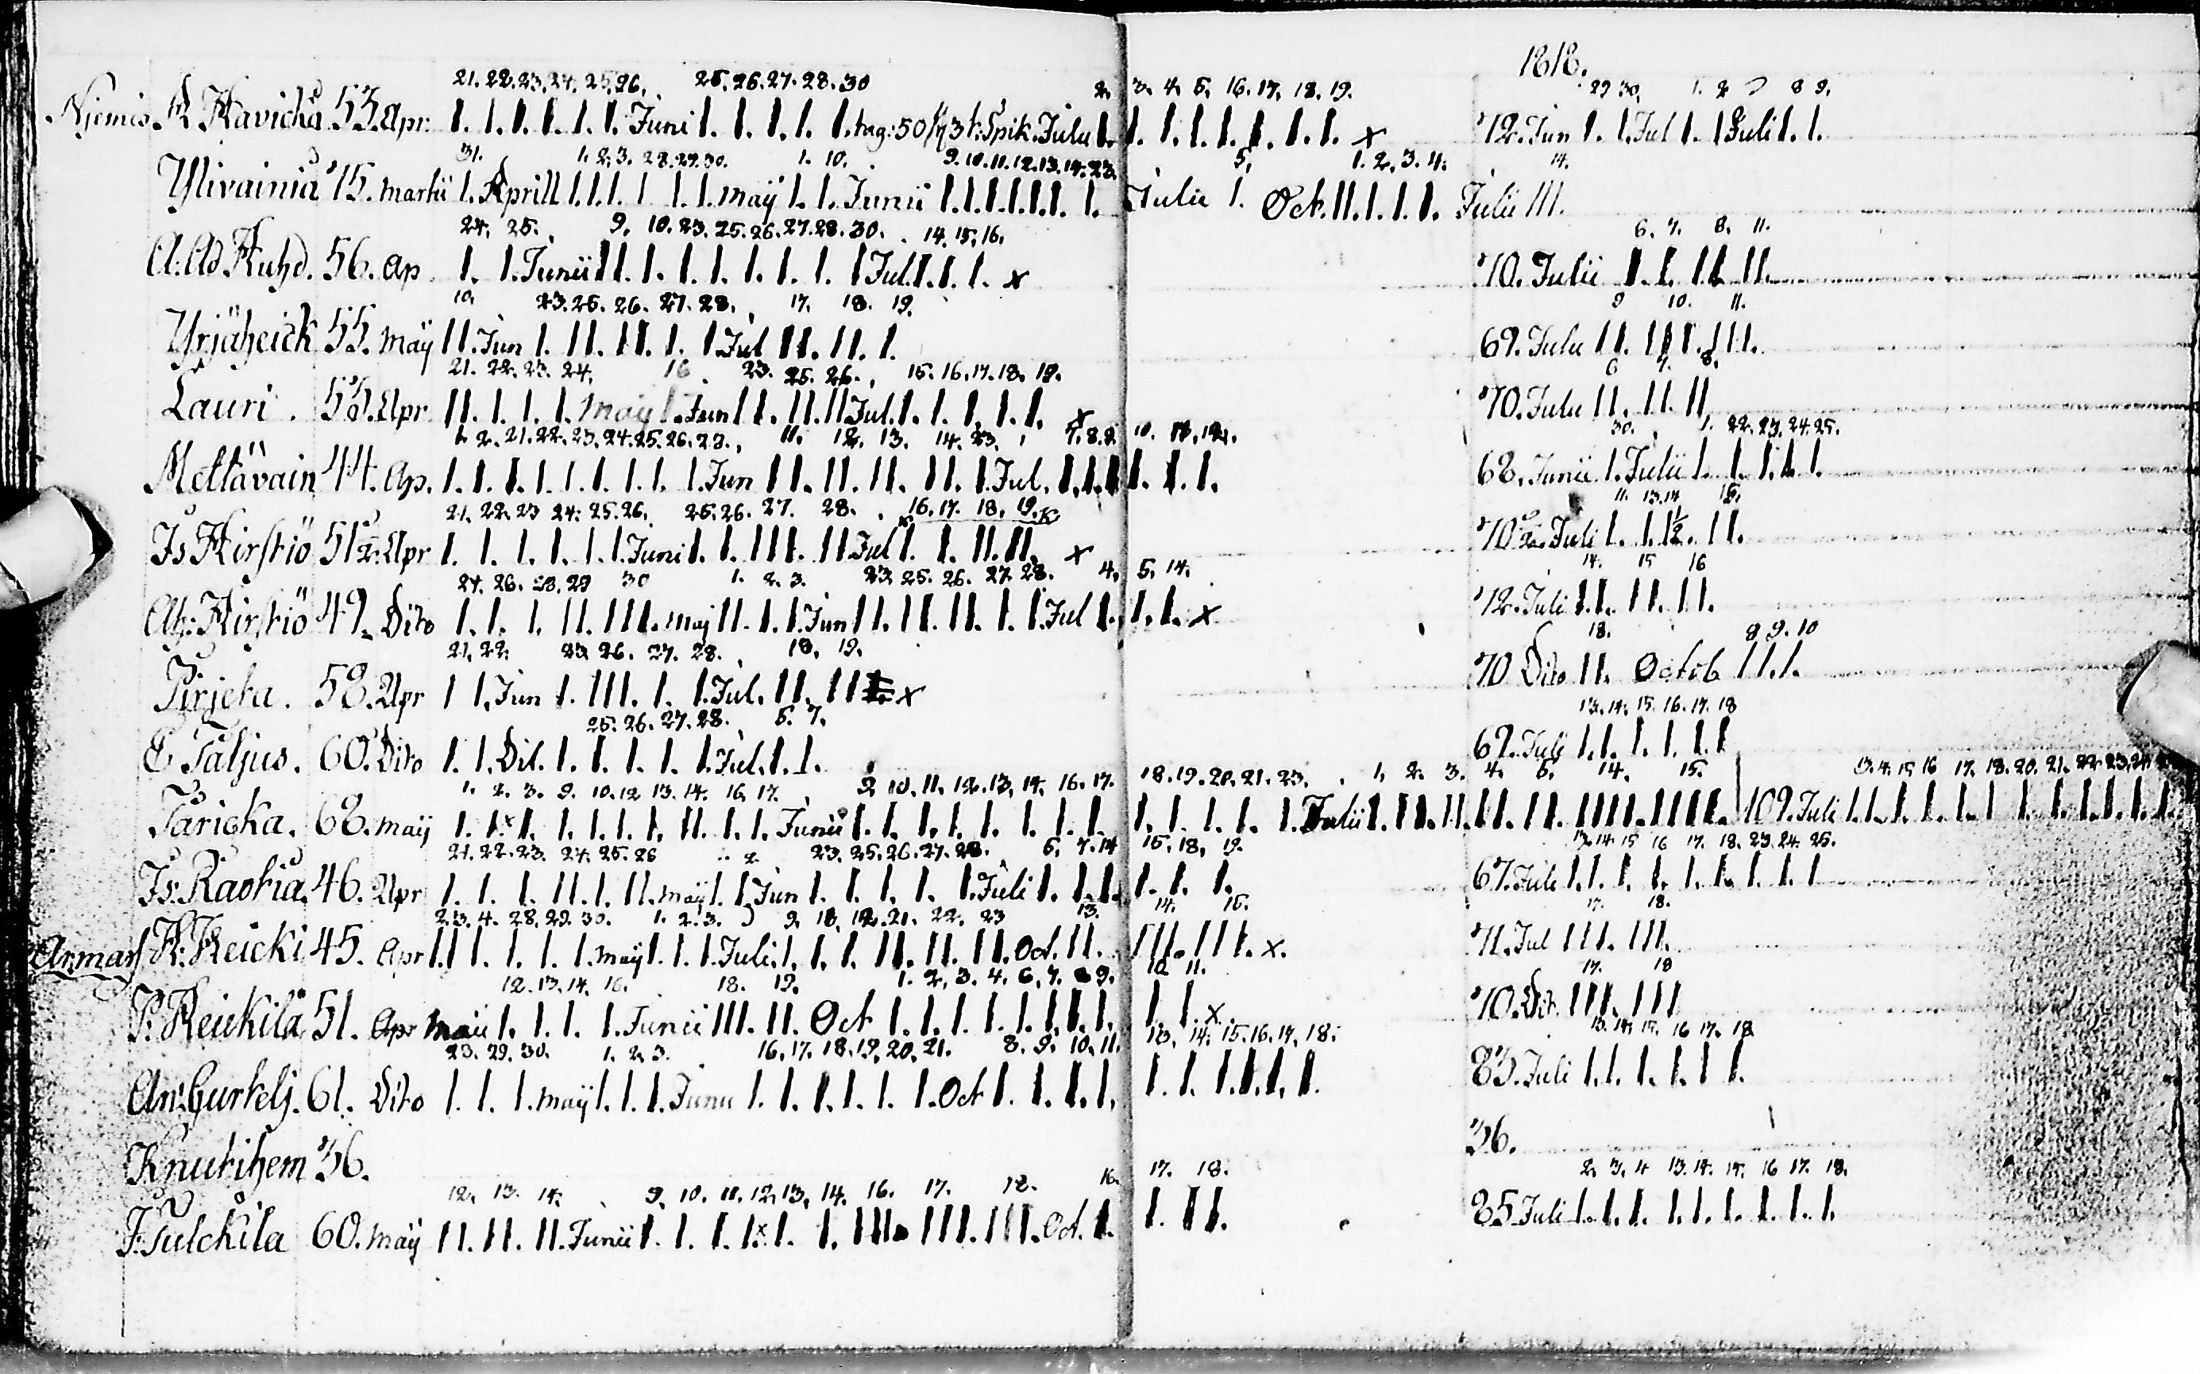 1818.
21. 22. 23. 24. 25. 26. 25. 26. 27. 28. 30 2. 3. 4. 5. 16. 17. 18. 19. 29 30. 1. 2 8 9.
Njemis 53. Apr: I. I. I. I. I. I. Juni I. I. I. I. I. tag: 50 Spik. Julii I. I. I. I. I. I. I. I. x 72. Jun I. I. Jul I. I Juli I. I.
31. 1. 2. 3. 28. 29. 30. 1. 10. 9. 10. 11. 12. 13. 14. 23. 5. 1. 2. 3. 4. 14.
Ylivainia 75. Martii I. Aprill I. I. I. I I. I. Maÿ I. I. Junii I. I. I. I. I. I. I. Julii I. Oct. II. I. I. I. Julii III.
24. 25. 9. 10. 23. 25. 26. 27. 28. 30. 14. 15. 16. 6. 7. 8. 11.
56. Ap I. I. Junii I I. I. I. I. I. I. I Jul. I. I. I. x 70. Julii I. I. II. II.
10. 23. 25. 26. 27. 28. 17. 18. 19. 9 10. 11.
Yrjäheick 55. Maÿ II. Jun I. II. II. I. I. Jul II. II. I. 69. Julii II. III. III.
21. 22. 23. 24. 16. 23. 25. 26. 15. 16. 17. 18. 19. 6 7. 8.
Lauri. 53. Apr II. I. I. I. Maÿ I. Jun I I. II. II Jul. I. I. I. I. I. x 70. Julii II. II. II.
1. 2. 21. 22. 23. 24. 25. 26. 27. 11. 12. 13. 14. 23. 7. 8. 9. 10. 11. 12. 30. 1. 22. 23. 24. 25.
Mettävain 44. Ap. I. I. I. I. I. I. I. I. I. Jun II. II. II. II. I. Jul. I. I. I. I. I. I. 68. Junii I. Julii I. I. I. I. I.
21. 22. 23 24. 25. 26. 25. 26. 27. 28. 16. 17. 18. 19. 11. 13. 14 15.
Is Kirstiö 51 Apr I. I. I. I. I. I. Juni I. I. III. II Jul I. I. II. II. x 70 Juli I. I. I ½. II.
24. 26. 28. 29 30 1. 2. 3. 23. 25. 26. 27. 28. 4. 5. 14. 14. 15 16
Kirstiö 49. Dito I. I. I. II. III. Maj II. I. I. Jun II. II. II. I. I. Jul I. I. I. x 72. Juli II. II. II.
21. 22. 23. 26. 27. 28. 18. 19. 18. 8 9. 10
Pirjeta. 58. Apr I I. Jun I. III. I. I. Jul. II. II x 70 Dito II. Octob II. I.
25. 26. 27. 28. 5. 7. 13. 14. 15. 16. 17. 18
60. Dito I. I. Dit. I. I. I. I. I. I. Jul. I. I. 69. Juli I. I. I. I. I. I
1. 2. 3. 9. 10. 12 13. 14. 16. 17. 9. 10. 11. 12. 13. 14. 16. 17. 18. 19. 20. 21. 23. 1. 2. 3. 4. 5. 14. 15. 13. 14. 15 16 17. 18. 20. 21. 22. 23. 24.
Taricka. 68. Maÿ I. I. x I. I. I. I. I. II. I. I. Junii I. I. I. I. I. I. I. I. I. I. I. I. Julii I. II. II. II. II. IIII. IIII. 109. Juli I. I. I. I. I. I I. I. I. I. I. I.
21. 22. 23. 24. 25. 26 2. 23. 25. 26. 27. 28. 5. 7. 14 15. 18. 19. 13. 14. 15 16 17. 18. 23. 24. 25.
Is: Raotia. 46. Apr I. I. I. II. I. II. Maÿ I. I. Jun I. I. I. I. I. Juli I. I. I. I. I. I. 67. Juli I. I. I. I. I. I. I. I. I
2. 3. 4. 28. 29. 30. 1. 2. 3. 9. 10. 12. 21. 22. 23 13. 14. 15. 17. 18.
Armas Heicki 45. Apr I. I I. I. I. I. Maÿ I. I. I. Juli. I. I. I. II. II. II. Oct. II. III. III. x. 71. Jul III. III.
12. 13. 14. 16. 18. 19. 1. 2. 3. 4. 6. 7. 8 9. 10 11. 17. 18
P. Heickilä 51. Apr Maii I. I. I. I. Junii III. II. Oct I. I. I. I. I. I. I. I. I I. x. 70. Dit. III. III
23. 29. 30. 1. 2. 3. 16. 17. 18. 19. 20. 21. 8. 9. 10. 11. 13. 14. 15. 16. 17. 18. 13. 14. 15. 16 17. 18
61. Dito I. I. I. Maÿ I. I. I. Junii I. I. I. I. I. I. Oct I. I. I. I. I. I. I. I. I. I. 83. Juli I. I. I. I. I I.
Knutihem 36. 36.
12. 13. 14. 9. 10. 11. 12. 13. 14. 16. 17. 18. 16. 17. 18. 2. 3. 4 13. 14. 15. 16 17. 18.
60. Maÿ II. II. II. Junii I. I. I. I. x I. I. III. III. III. Oct. I. I. II. 85. Juli I. I. I. I. I. I. I. I. I.